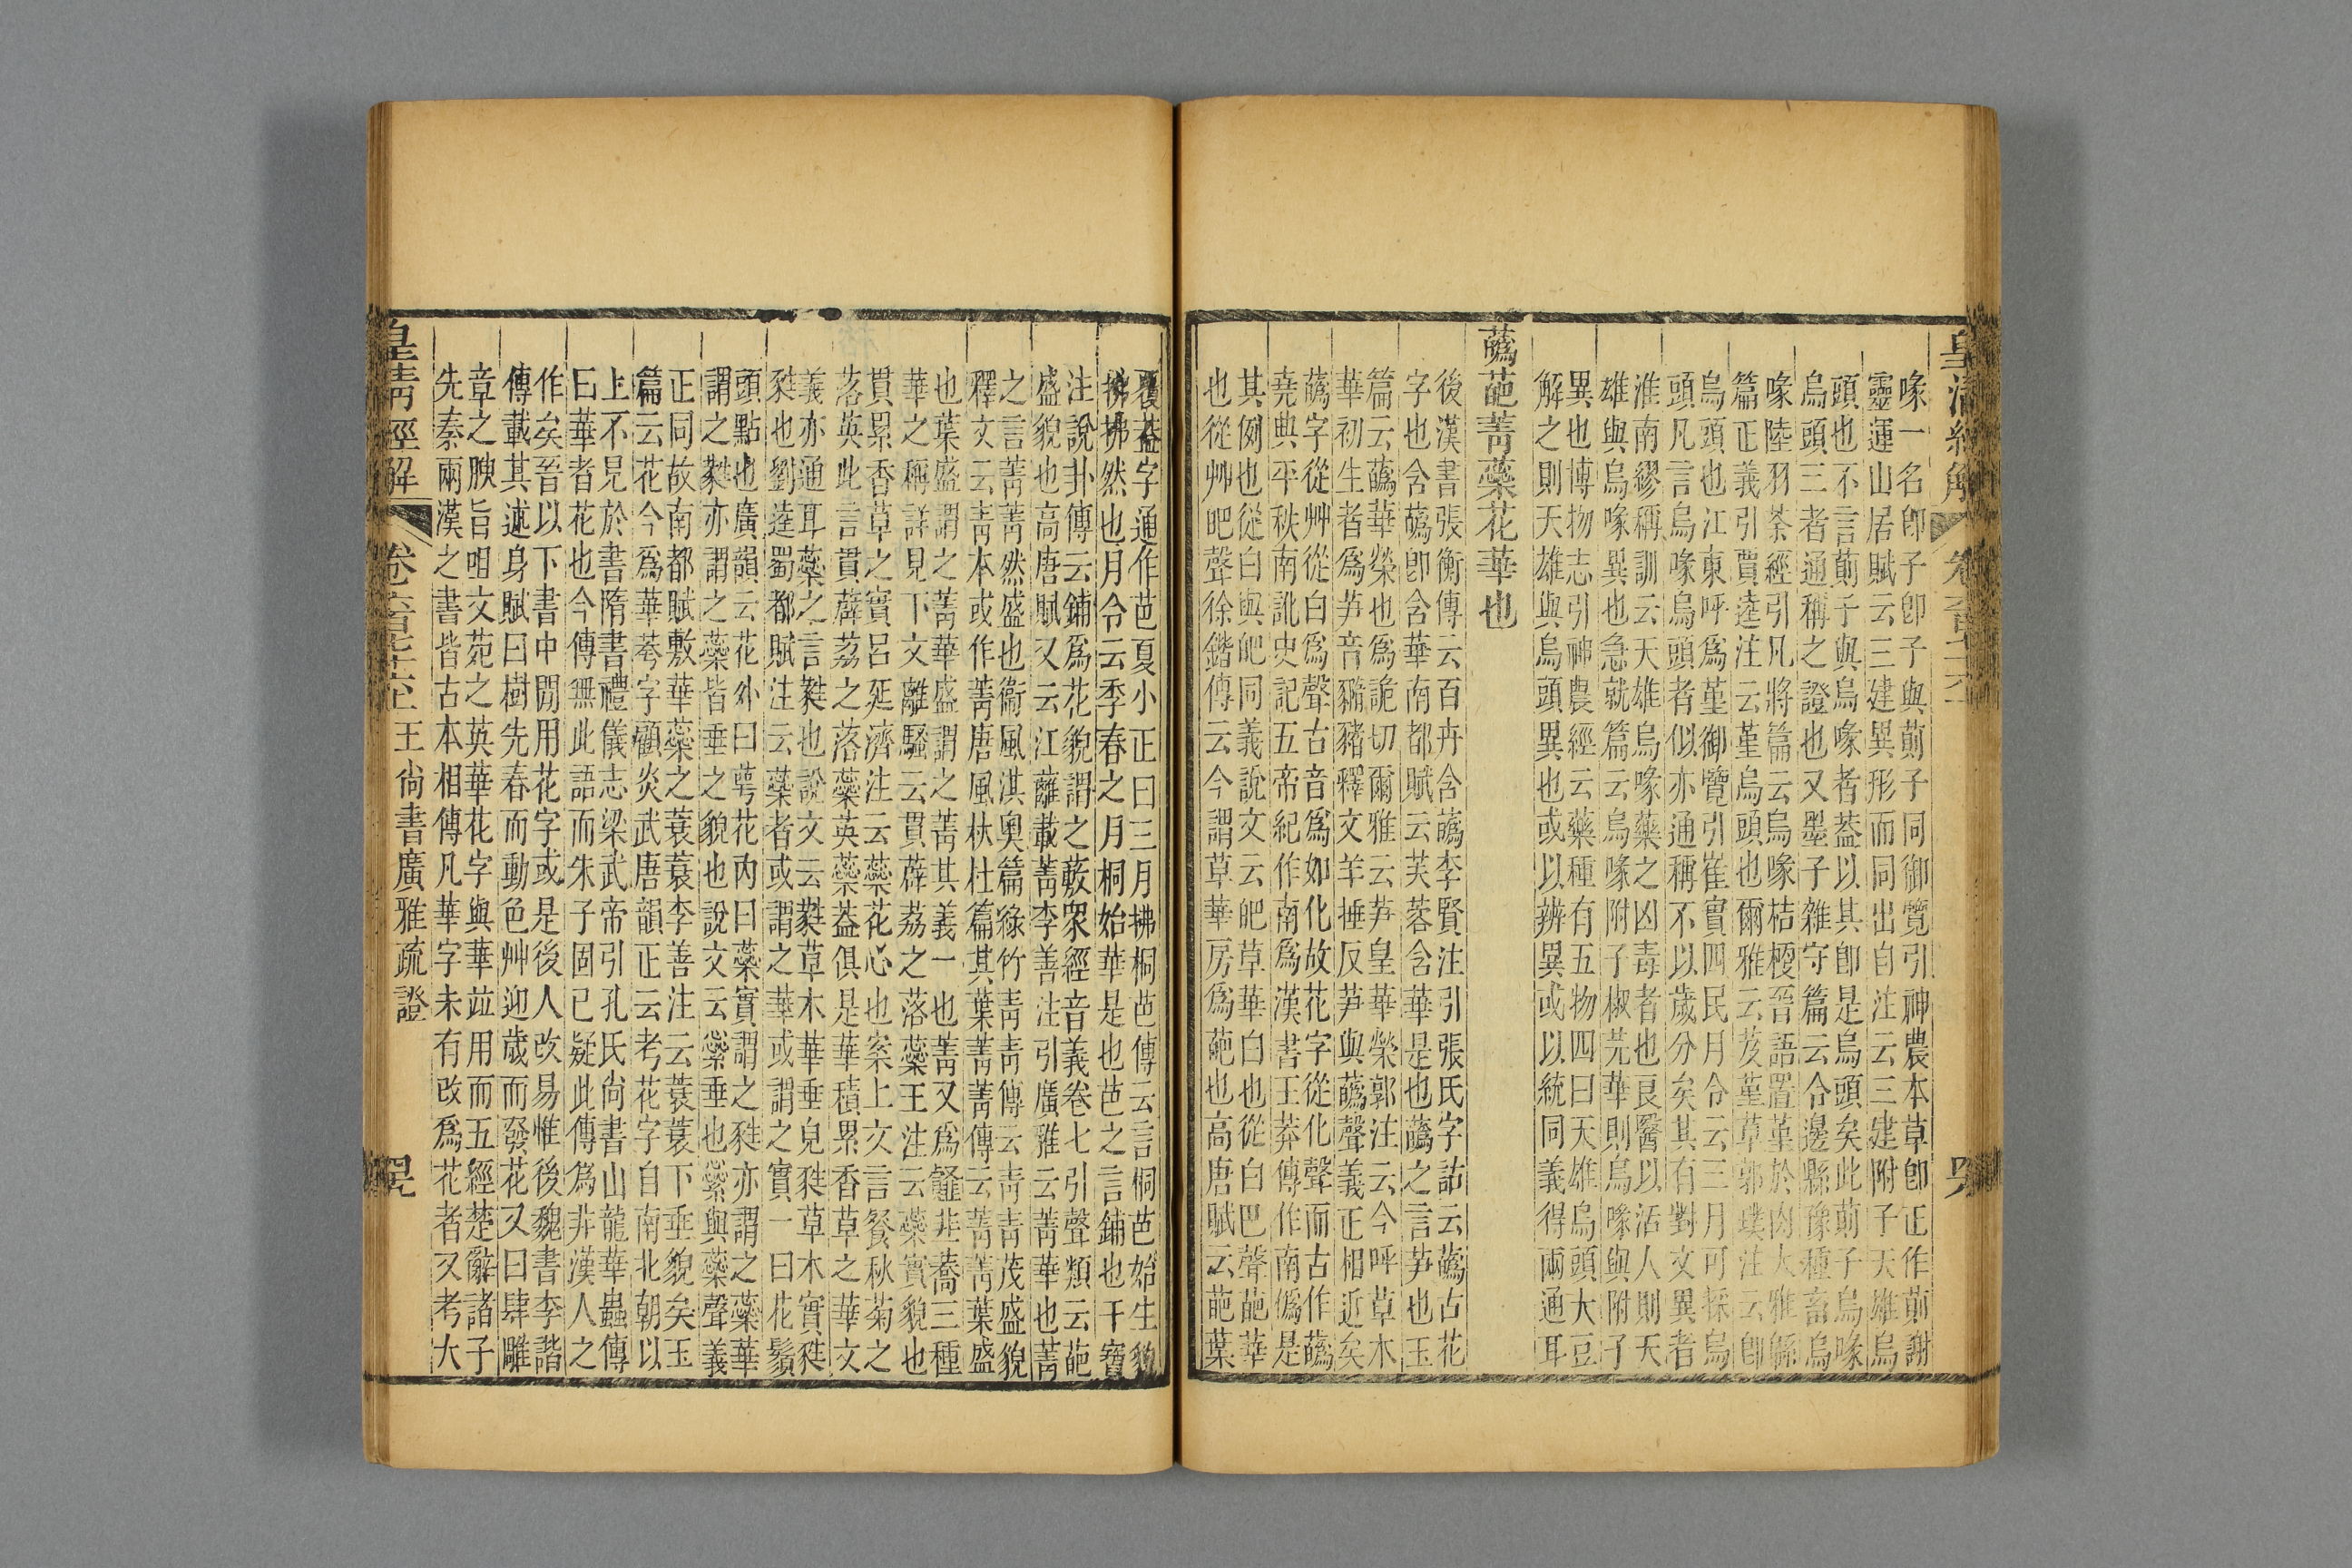 皇清經解
喙一名卽子卽子與萴子同御覽引神農本草卽正作萴謝
靈運山居賦云三建異形而同出自注云三建附子天雄烏
頭也不言萴子與烏喙者葢以其卽是烏頭矣此萴子烏喙
烏頭三者通稱之證也又墨子雜守篇云令邊縣豫種畜烏
喙陸羽茶經引凡將篇云烏喙桔梗晉語置堇於肉大雅緜
篇正義引賈逵注云堇烏頭也爾雅云芨堇草郭璞注云卽
烏頭也江東呼爲堇御覽引崔寔四民月令云三月可採烏
頭凡言烏喙烏頭者似亦通稱不以歲分矣其有對文異者
淮南繆稱訓云天雄烏喙藥之凶毒者也良醫以活人則天
雄與烏喙異也急就篇云烏喙附子椒芫華則烏喙與附子
異也博物志引神農經云藥種有五物四曰天雄烏頭大豆
解之則天雄與烏頭異也或以辨異或以統同義得兩通耳
蘤葩菁蘂花華也
後漢書張衡傳云百卉含蘤李賢注引張氏字詁云蘤古花
字也含蘤卽含華南都賦云芙蓉含華是也蘤之言芛也玉
篇云蘤華榮也爲詭切爾雅云芛皇華榮郭注云今呼草木
華初生者爲芛音豨豬釋文羊捶反芛與蘤聲義正相近矣
蘤字從艸從白爲聲古音爲如化故花字從化聲而古作蘤
堯典平秩南訛史記五帝紀作南爲漢書王莽傳作南僞是
其例也從白與皅同義說文云皅草華白也從白巴聲葩華
也從艸皅聲徐鍇傳云今謂草華房爲葩也高唐賦云葩葉
覆葢字通作芭夏小正曰三月拂桐芭傳云言桐芭始生貌
拂拂然也月令云季春之月桐始華是也芭之言鋪也干寶
注說卦傳云鋪爲花貌謂之蔽眾經音義卷七引聲類云葩
盛貌也高唐賦又云江蘺載菁李善注引廣雅云菁華也菁
之言菁菁然盛也衞風淇奧篇綠竹青青傳云青青茂盛貌
釋文云青本或作菁唐風杕杜篇其葉菁菁傳云菁菁葉盛
也葉盛謂之菁華盛謂之菁其義一也菁又爲韰韭蕎三種
華之稱詳見下文離騷云貫薜荔之落蘂王注云蘂實貌也
貫累香草之實呂延濟注云蘂花心也案上文言餐秋菊之
落英此言貫薜荔之落蘂英蘂葢俱是華積累香草之華文
義亦通耳蘂之言甤也說文云甤草木華垂皃甤草木實甤
甤也劉逵蜀都賦注云蘂者或謂之華或謂之實一曰花鬚
頭點也廣韻云花外曰萼花內曰蘂實謂之甤亦謂之蘂華
謂之甤亦謂之蘂皆垂之貌也說文云繠垂也繠與蘂聲義
正同故南都賦敷華蘂之蓑蓑李善注云蓑蓑下垂貌矣玉
篇云花今爲華荂字顧炎武唐韻正云考花字自南北朝以
上不見於書隋書禮儀志梁武帝引孔氏尚書山龍華蟲傳
曰華者花也今傳無此語而朱子固已疑此傳爲非漢人之
作矣晉以下書中閒用花字或是後人改易惟後魏書李諧
傳載其述身賦曰樹先春而動色艸迎歲而發花又曰肆雕
章之腴旨咀文苑之英華花字與華竝用而五經楚辭諸子
先秦兩漢之書皆古本相傳凡華字未有改爲花者又考大
皇清經解
王尙書廣雅疏證